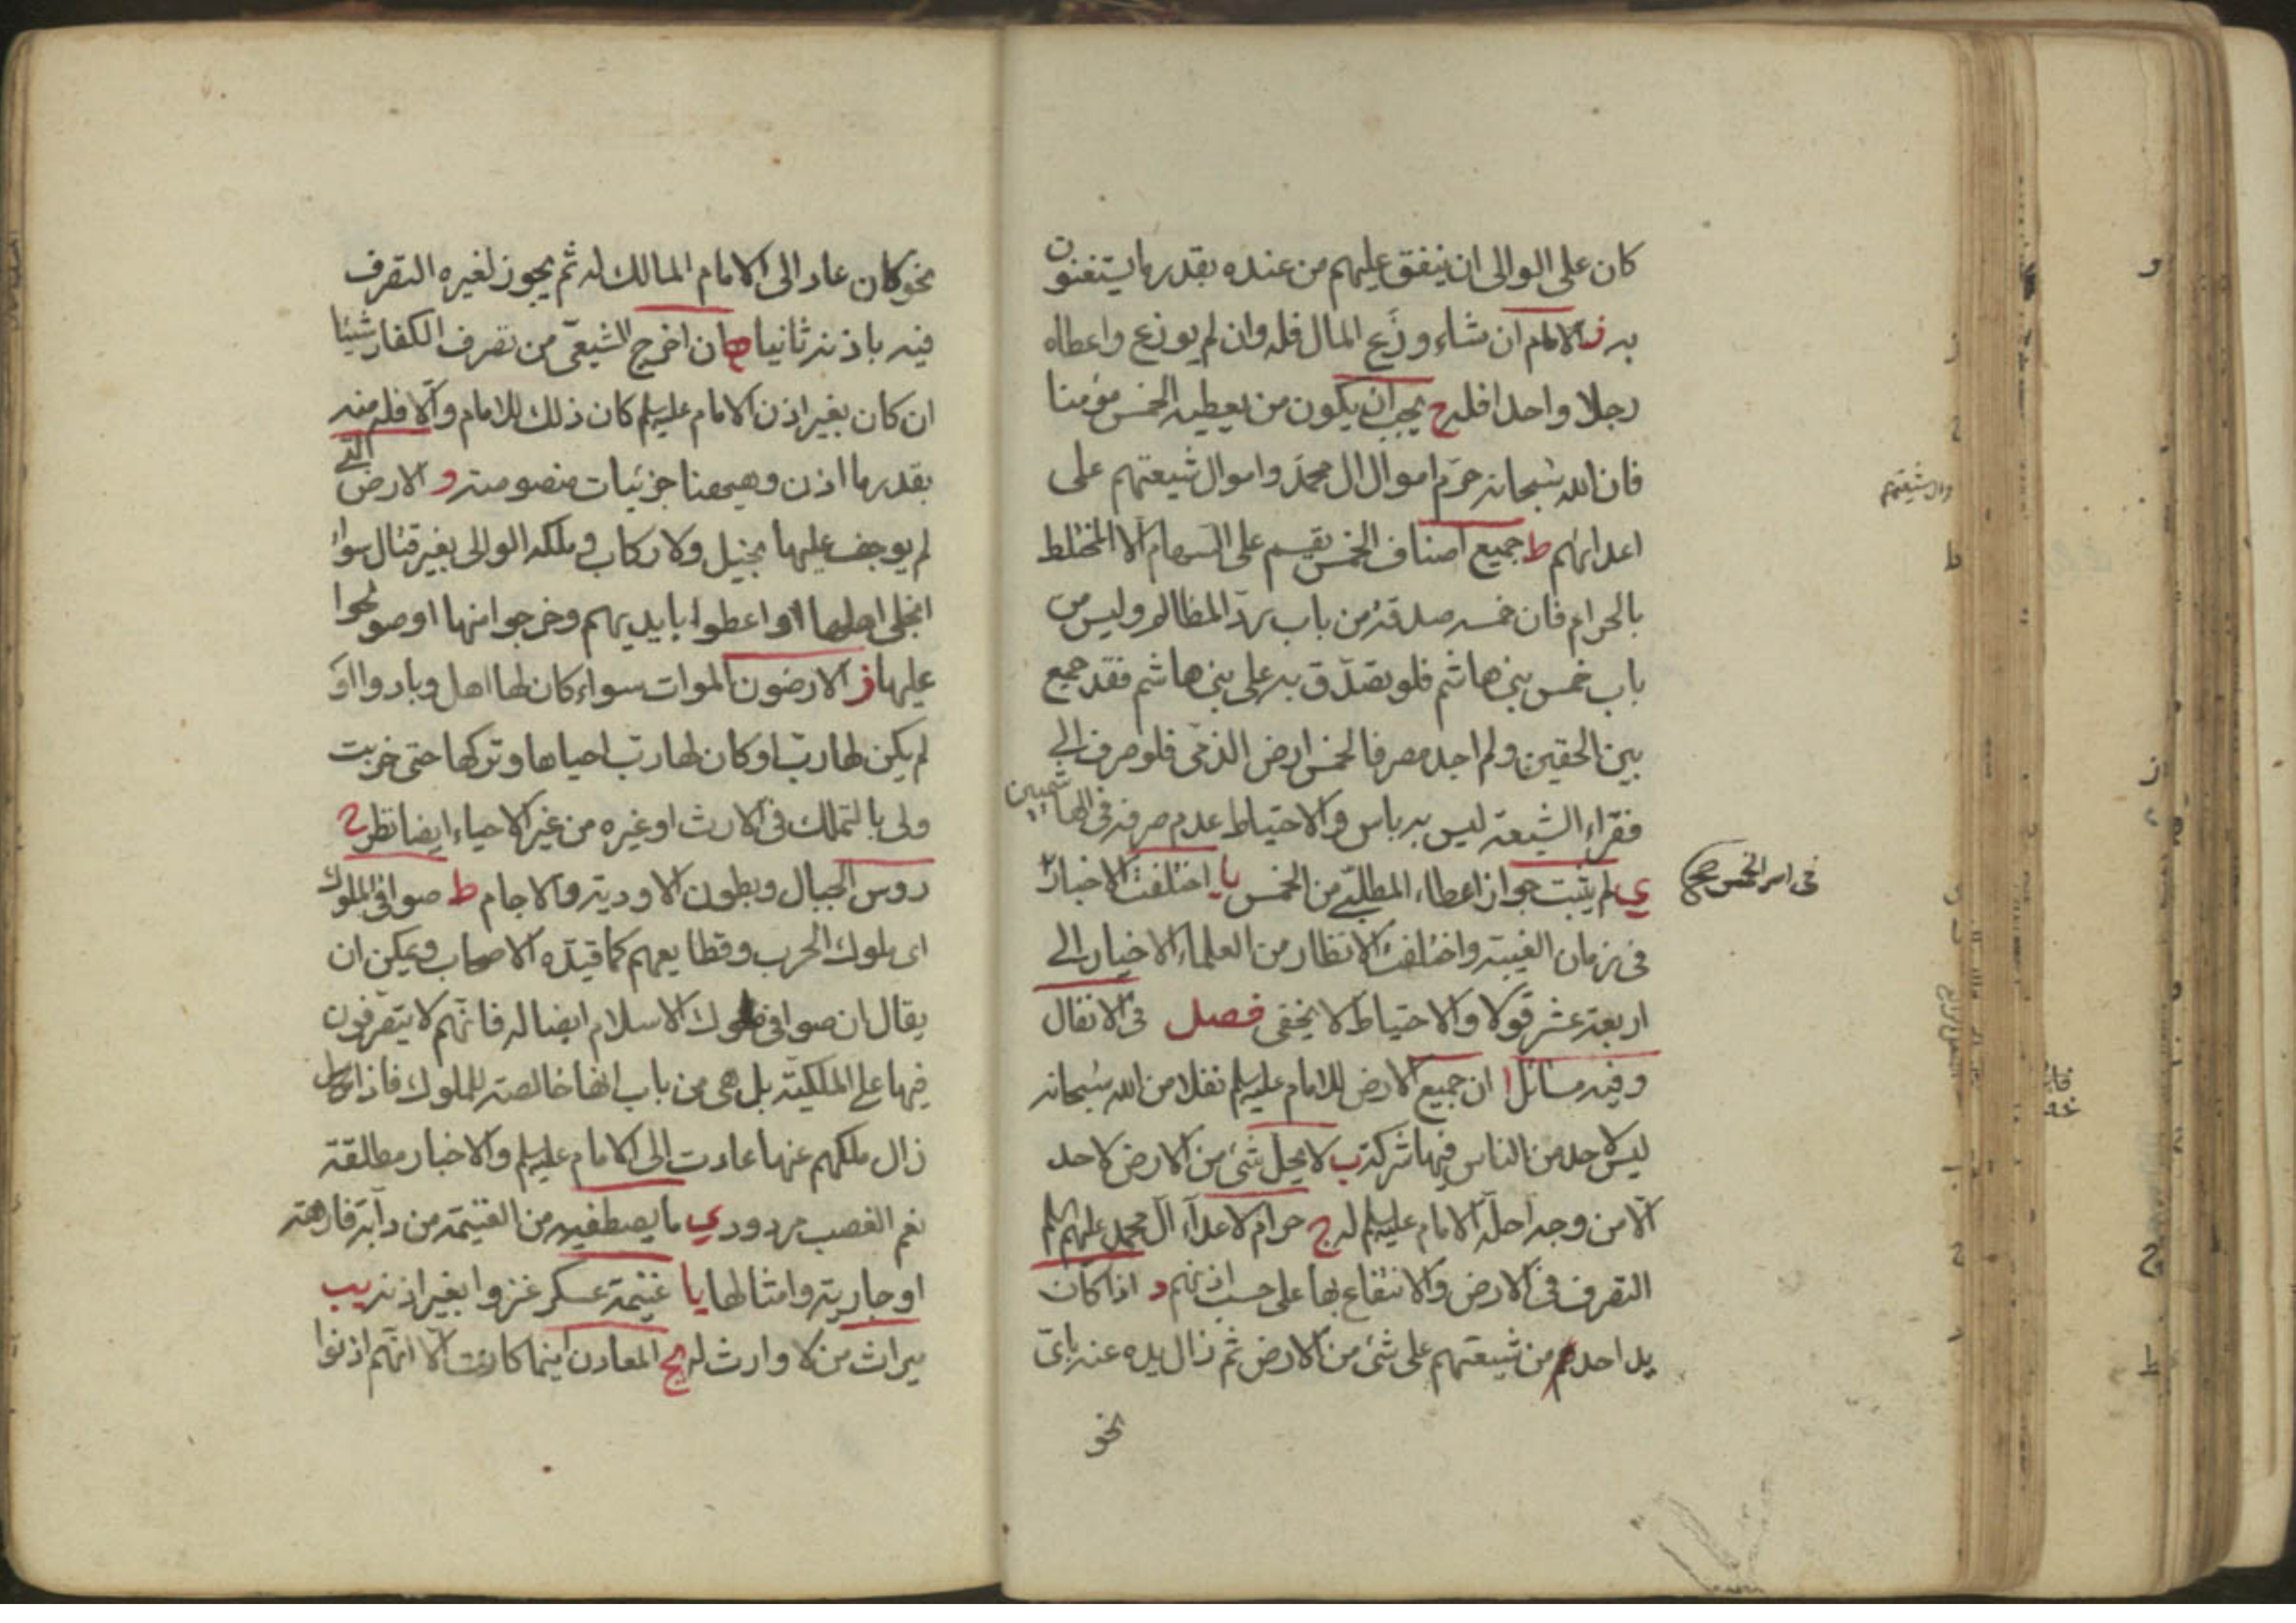 كان على الوالى ان ينفق عليهم من عنده بقدر ما يستغنون
به ز الامام ان شاء وزّع المال فله وان لم يوزع واعطاه
رجلا واحدا فله ح يجب ان يكون من يعطيه الخمس مؤمنا
فان الله سبحانه حرّم اموال ال محمد واموال شيعتهم على
اعدائهم ط جميع اصناف الخمس يقسم على السهام الا المختلط
بالحرام فان خمسه صدقة من باب ردّ المظالم وليس من
باب خمس بنى هاشم فلو تصدّق به على بنى هاشم فقد جمع
بين الحقين ولم اجد مصرفا لخمس ارض الذمى فلو صرف الى
فقراء الشيعة ليس به باس والاحتياط عدم صرفه فى الهاشميين
ي لم يثبت جواز اعطاء المطلبى من الخمس يا اختلفت الاخبار
فى امر الخمس صح
فى زمان الغيبة واختلفت الانظار من العلماء الاخيار الى
اربعة عشر قولا والاحتياط لا يخفى فصل فى الانفال
وفيه مسائل ا ان جميع الارض للامام عليه السلم نفلا من الله سبحانه
ليس لاحد من الناس فيها شركة ب لا يحل شئ من الارض لاحد
الا من وجه احلّه الامام عليه السلم له ج حرام لاعدآء آل محمد عليهم السلم
التصرف فى الارض والانتفاع بها على حسب اذنهم د اذا كان
يد احد من شيعتهم على شئ من الارض ثم زال يده عنه باىّ
نحو
نحو كان عاد الى الامام المالك له ثم يجوز لغيره التصرف
فيه باذنه ثانيا ه ان اخرج الشيعى من تصرف الكفار شيئا
ان كان بغير اذن الامام عليه السلم كان ذلك للامام والّا فله منه
بقدر ما اذن وهيهنا جزئيات منصوصة و الارض التى
لم يوجف عليها بخيل ولا ركاب وملكه الوالى بغير قتال سواء
انجلى اهلها او اعطوا بايديهم وخرجوا منها او صولحوا
عليها ز الارضون الموات سواء كان لها اهل وبادوا او
لم يكن لها ربّ او كان لها ربّ احياها وتركها حتى خربت
ولى بالتملك فى الارث او غيره من غير الاحياء ايضا نظر ح
رؤس الجبال وبطون الاودية والاجام ط صوافى الملوك
اى ملوك الحرب وقطايعهم كما قيّده الاصحاب ويمكن ان
يقال ان صوافى ملوك الاسلام ايضا له فانّهم لا يتصرفون
فيها على الملكية بل هى من باب انها خالصة للملوك فاذا
زال ملكهم عنها عادت الى الامام عليه السلم والاخبار مطلقة
نعم الغصب مردود ي ما يصطفيه من الغنيمة من دآبة فارهة
او جارية وامثالها يا غنيمة عسكر غزوا بغير اذنه يب
ميراث من لا وارث له يج المعادن اينما كانت الا انّهم اذنوا